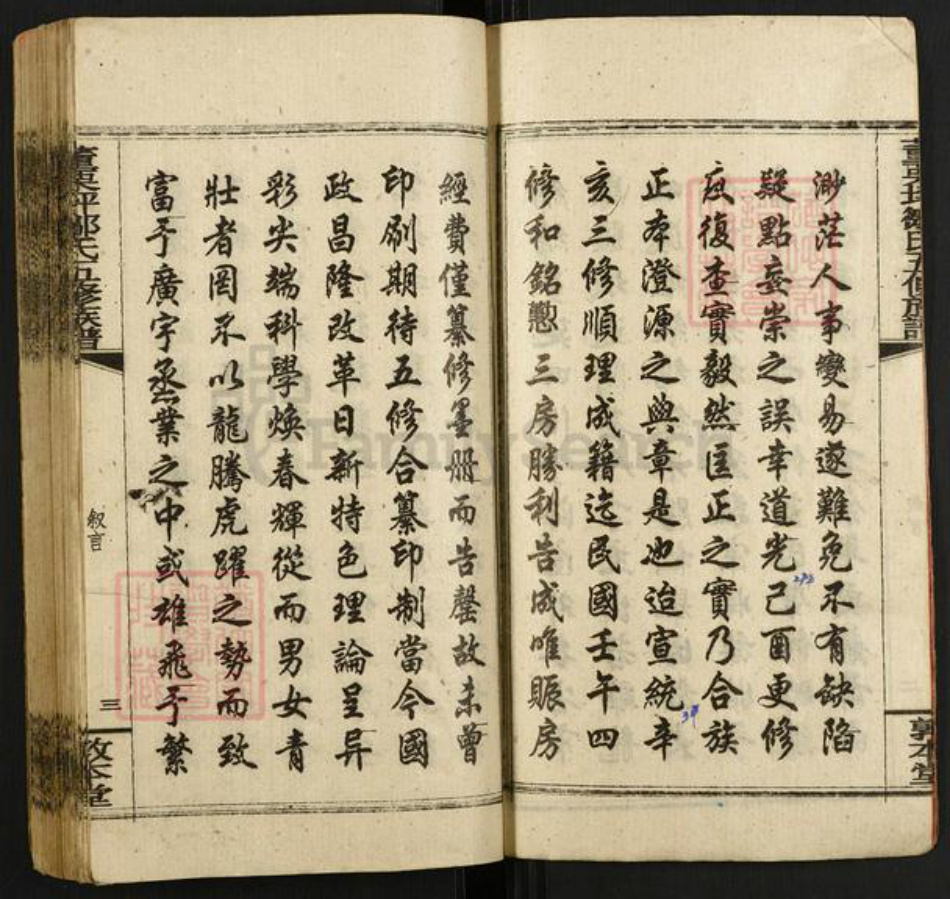 渺茫人事變易遂難免不有缺陷
疑點妄崇之誤幸道光己酉更修
庚復查實毅然匡正之實乃合族
正本澄源之典章是也迨宣統辛
亥三修順理成籍迄民國壬午四
修和銘懃三房勝利告成唯賑房
經費僅纂修墨册而告罄故未曾
印刷期待五修合纂印制當今國
政昌隆改革日新特色理論呈异
彩尖端科學煥春輝從而男女青
壯者罔不以龍騰虎躍之勢而致
富于廣宇烝業之中或雄飛于繁
鄒氏五修族譜
叙言
三
敦本堂
FamilySearch